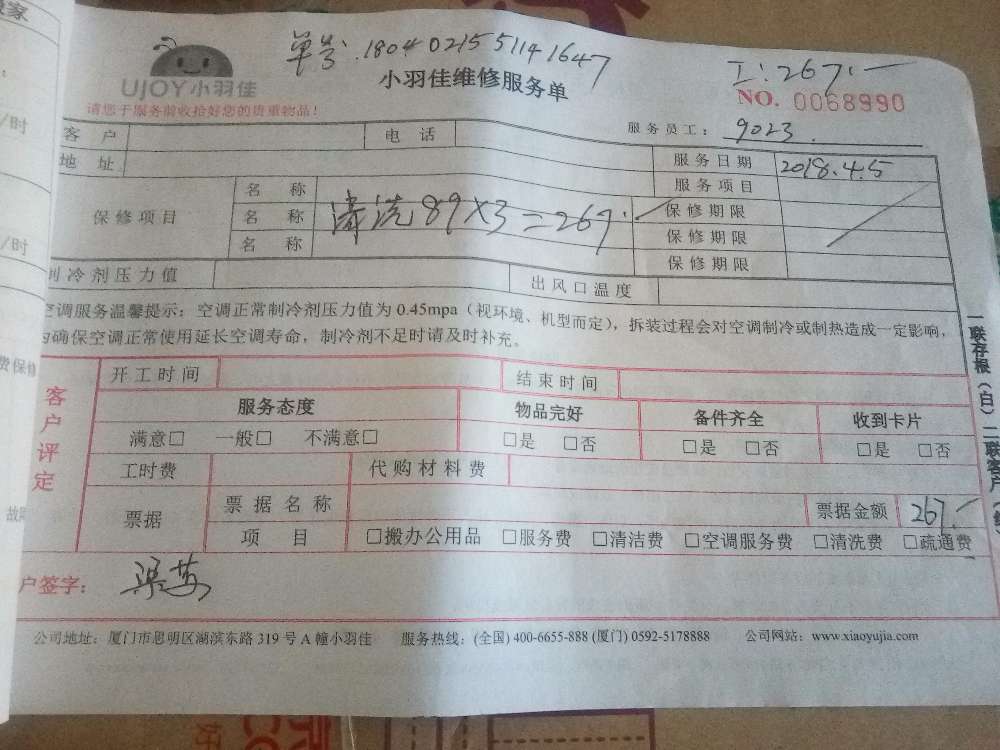 单号:1804021551141647
工:267.—
UJOY小羽佳
小羽佳维修服务单
NO. 0068990
请您于服务前收拾好您的贵重物品!
服务员工: 9023
客户 电话
服务日期 2018.4.5
地址
服务项目
保修项目 名称
名称 清洗89×3=267.— 保修期限
名称 保修期限
保修期限
制冷剂压力值 出风口温度
空调服务温馨提示:空调正常制冷剂压力值为 0.45mpa(视环境、机型而定),拆装过程会对空调制冷或制热造成一定影响,
为确保空调正常使用延长空调寿命,制冷剂不足时请及时补充。
客户评定
开工时间 结束时间
服务态度 物品完好 备件齐全 收到卡片
满意□ 一般□ 不满意□ □是 □否 □是 □否 □是 □否
工时费 代购材料费
票据 票据名称 票据金额 267.—
项目 □搬办公用品 □服务费 □清洁费 □空调服务费 □清洗费 □疏通费
户签字: 梁芬
公司地址:厦门市思明区湖滨东路 319 号 A 幢小羽佳 服务热线:(全国) 400-6655-888 (厦门) 0592-5178888 公司网站:www.xiaoyujia.com
一联存根(白) 二联客户
/时
/时
费保修
故障